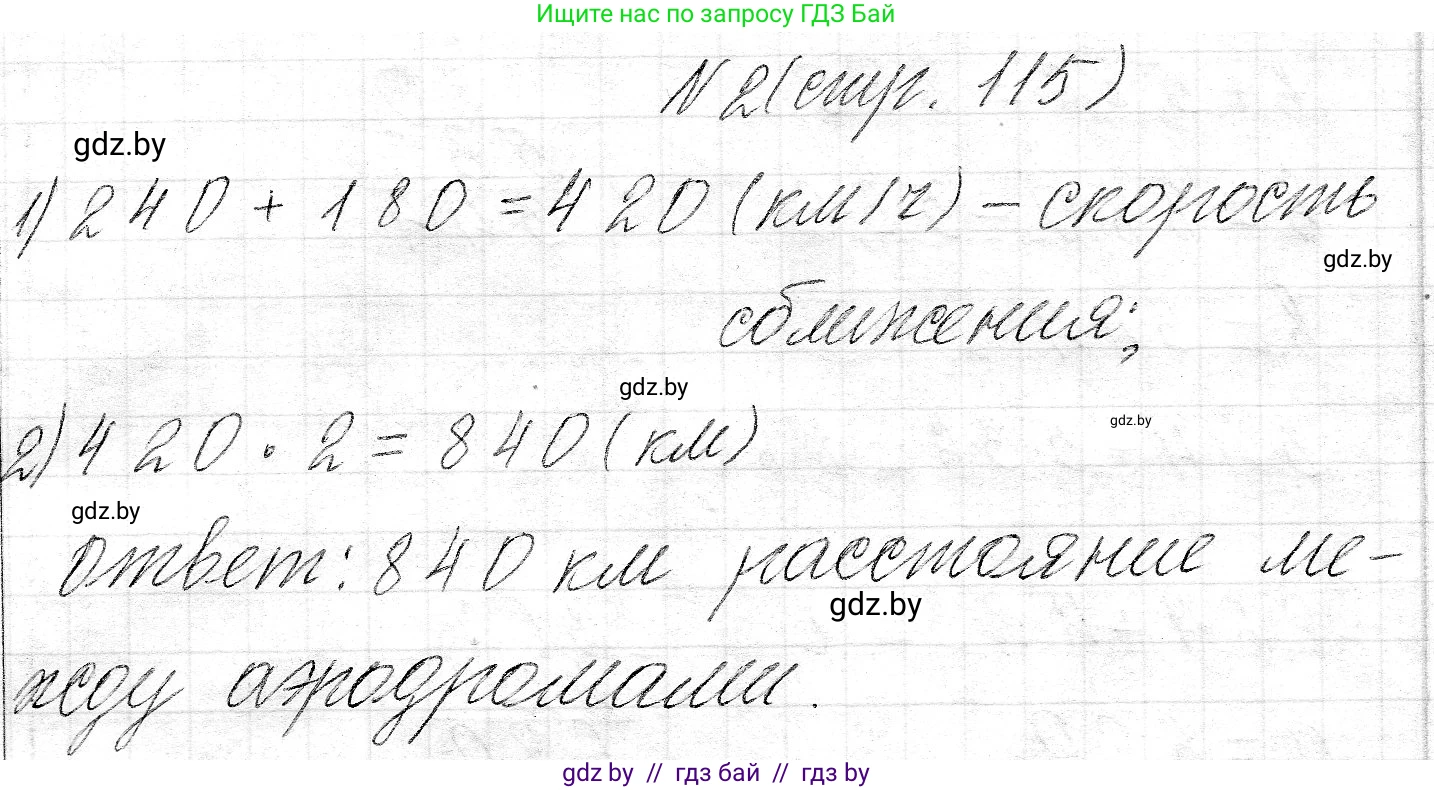 Ищите нас по запросу ГДЗ Бай
N 2 (стр. 115)
gdz.by
1) 240 + 180 = 420 (км/ч) – скорость
gdz.by
сближения;
gdz.by
gdz.by
2) 420 · 2 = 840 (км)
gdz.by
Ответ: 840 км расстояние ме-
gdz.by
жду аэродромами.
gdz by // гдз бай // гдз by